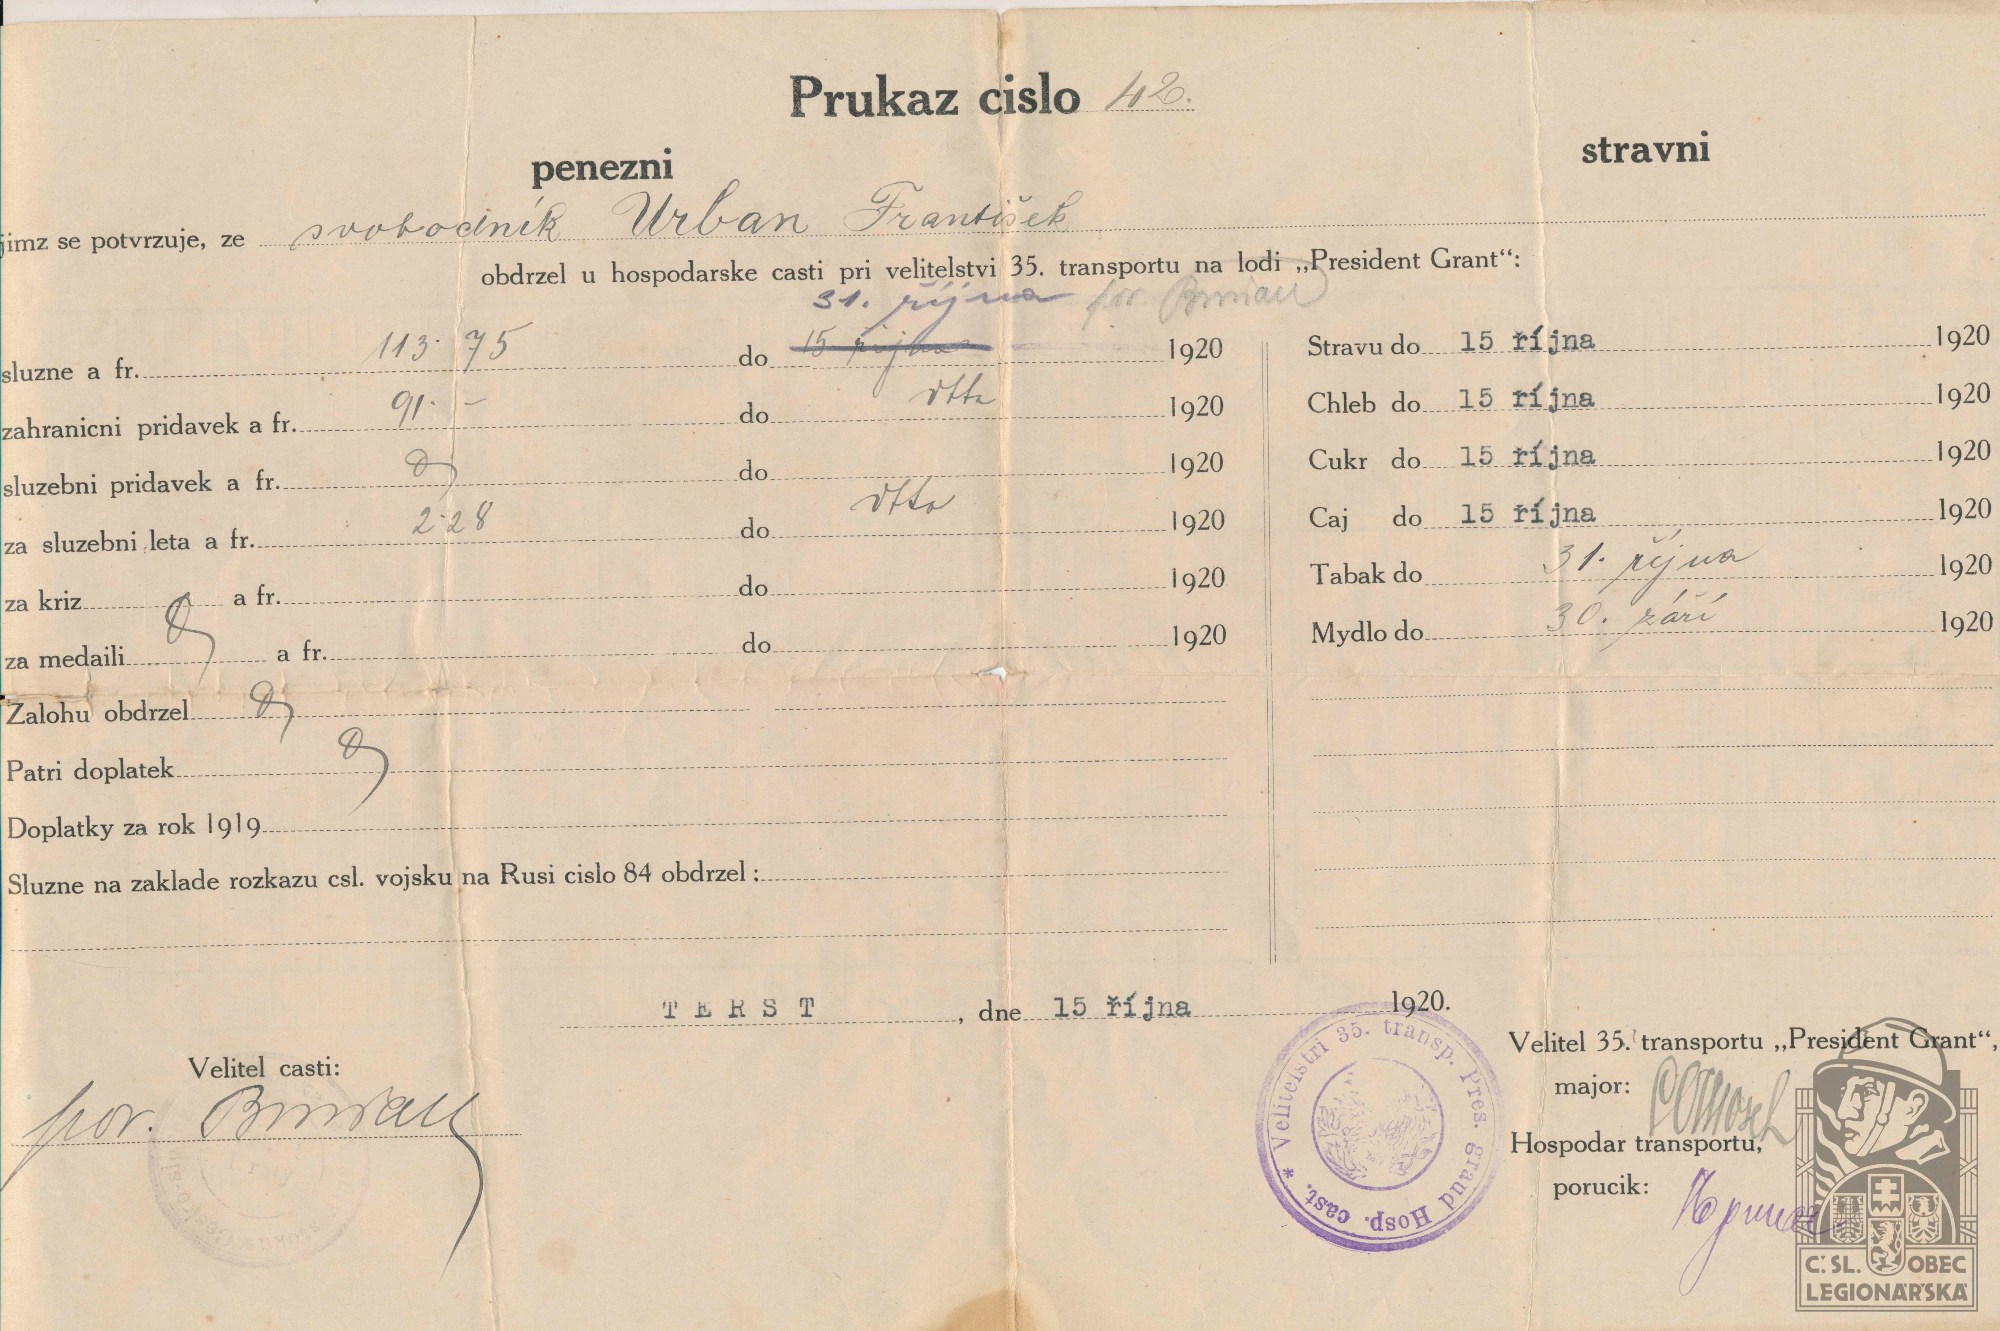 Prukaz cislo 42.
penezni
stravni
jimz se potvrzuje, ze svobodník Urban František
obdrzel u hospodarske casti pri velitelstvi 35. transportu na lodi „President Grant“:
31. října por.
sluzne a fr. 113.75 do 15 října 1920
zahranicni pridavek a fr. 91.- do dtto 1920
sluzebni pridavek a fr. do 1920
za sluzebni leta a fr. 2.28 do dtto 1920
za kriz a fr. do 1920
za medaili a fr. do 1920
Zalohu obdrzel
Patri doplatek
Doplatky za rok 1919
Sluzne na zaklade rozkazu csl. vojsku na Rusi cislo 84 obdrzel:
Stravu do 15 října 1920
Chleb do 15 října 1920
Cukr do 15 října 1920
Caj do 15 října 1920
Tabak do 31. října 1920
Mydlo do 30. září 1920
TERST, dne 15 října 1920.
Velitel casti:
por.
* Velitelstri 35. transp. Pres. graud Hosp. cast.
Velitel 35. transportu „President Grant“,
major:
Hospodar transportu,
porucik:
Č.SL. OBEC
LEGIONÁŘSKÁ